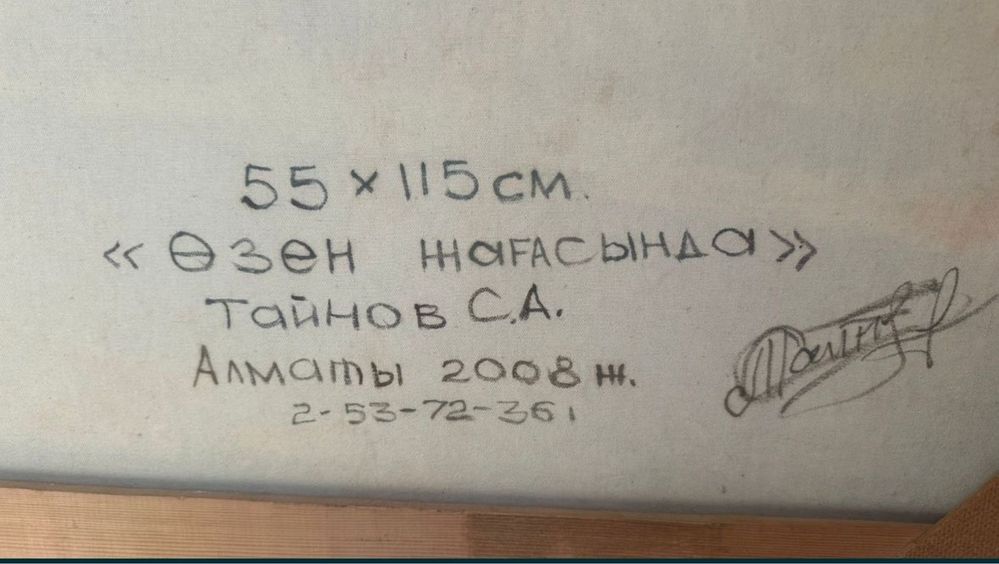 55 × 115 см.
«Өзен жағасында»
Тайнов С.А.
Алматы 2008 ж.
2-53-72-361